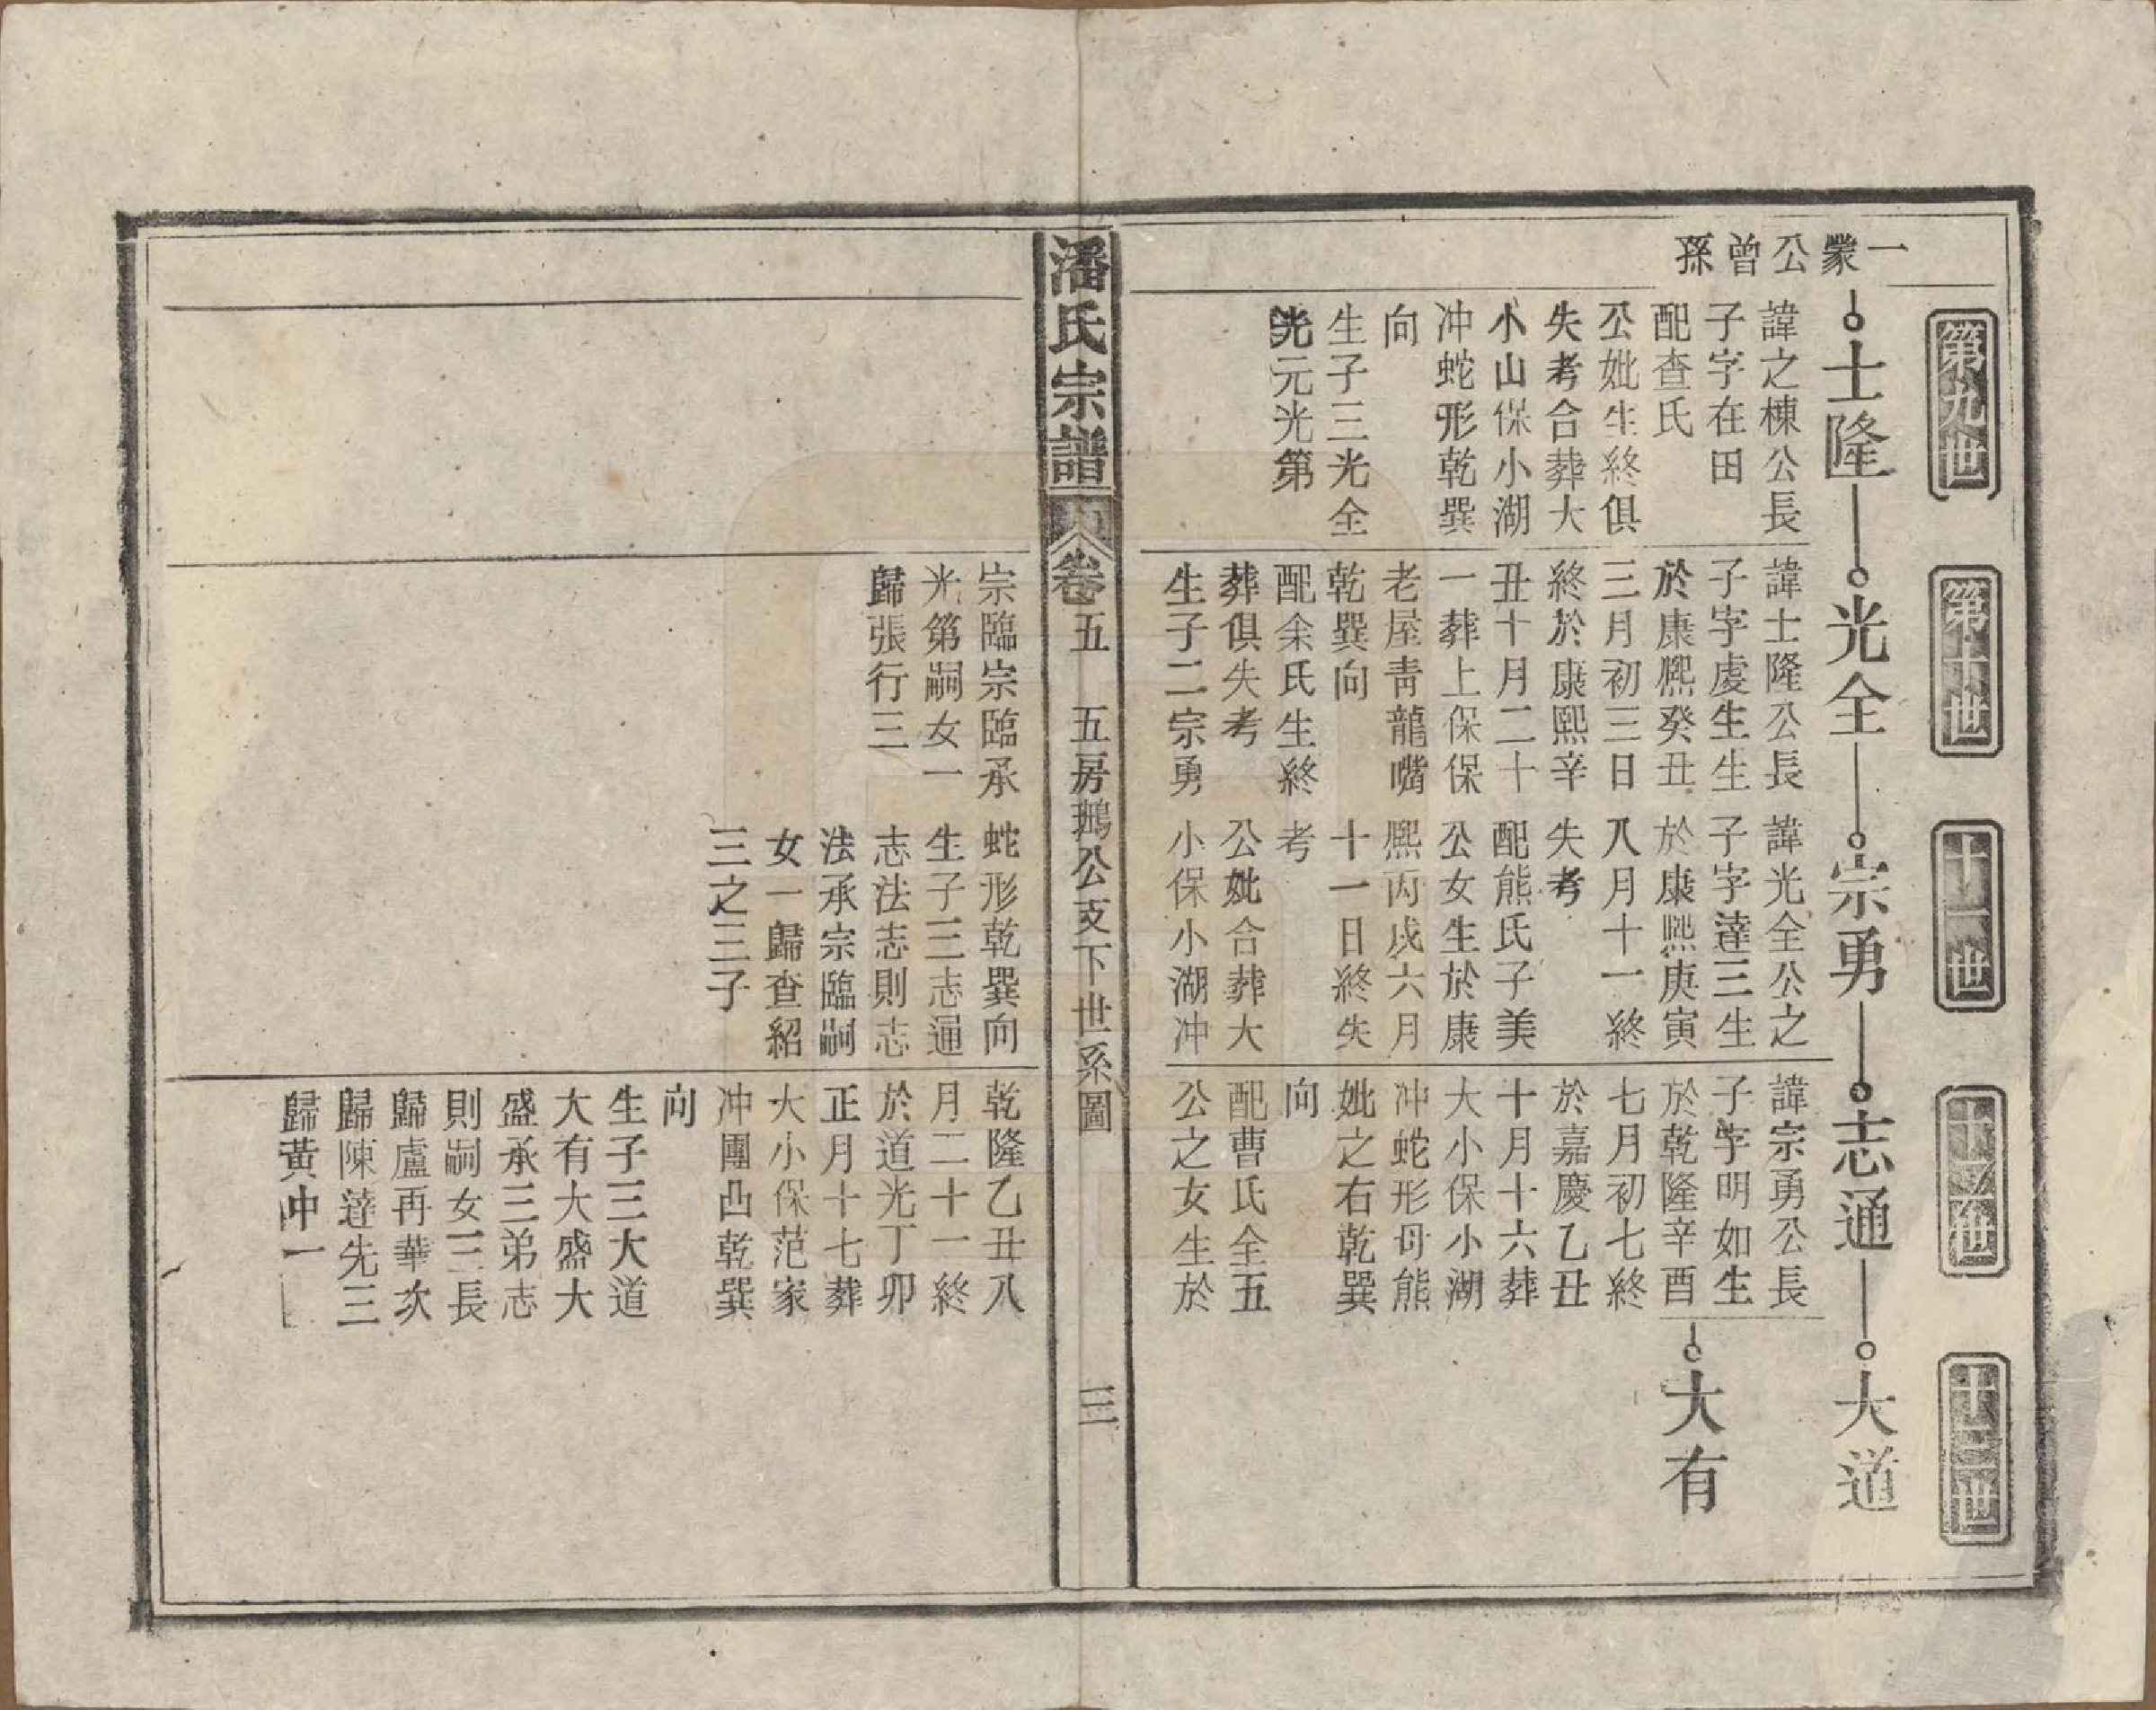 第九世
第十世
十一世
十二世
十三世
一蒙公曾孫
士隆
光全
宗勇
志通
大道
大有
諱之棟公長
子字在田
配查氏
公妣生終俱
失考合葬大
小山保小湖
冲蛇形乾巽
向
生子三光全
光元光第
諱士隆公長
子字虔生生
於康熙癸丑
三月初三日
終於康熙辛
丑十月二十
一葬上保保
老屋青龍嘴
乾巽向
配余氏生終
葬俱失考
生子二宗勇
宗臨宗臨承
光第嗣女一
歸張行三
諱光全公之
子字達三生
於康熙庚寅
八月十一終
失考
配熊氏子美
公女生於康
熙丙戌六月
十一日終失
考
公妣合葬大
小保小湖冲
蛇形乾巽向
生子三志通
志法志則志
法承宗臨嗣
女一歸查紹
三之三子
諱宗勇公長
子字明如生
於乾隆辛酉
七月初七終
於嘉慶乙丑
十月十六葬
大小保小湖
冲蛇形母熊
妣之右乾巽
向
配曹氏全五
公之女生於
乾隆乙丑八
月二十一終
於道光丁卯
正月十七葬
大小保范家
冲團凸乾巽
向
生子三大道
大有大盛大
盛承三弟志
則嗣女三長
歸盧再華次
歸陳達先三
歸黃中一
潘氏宗譜 卷五 五房鵝公支下世系圖 三